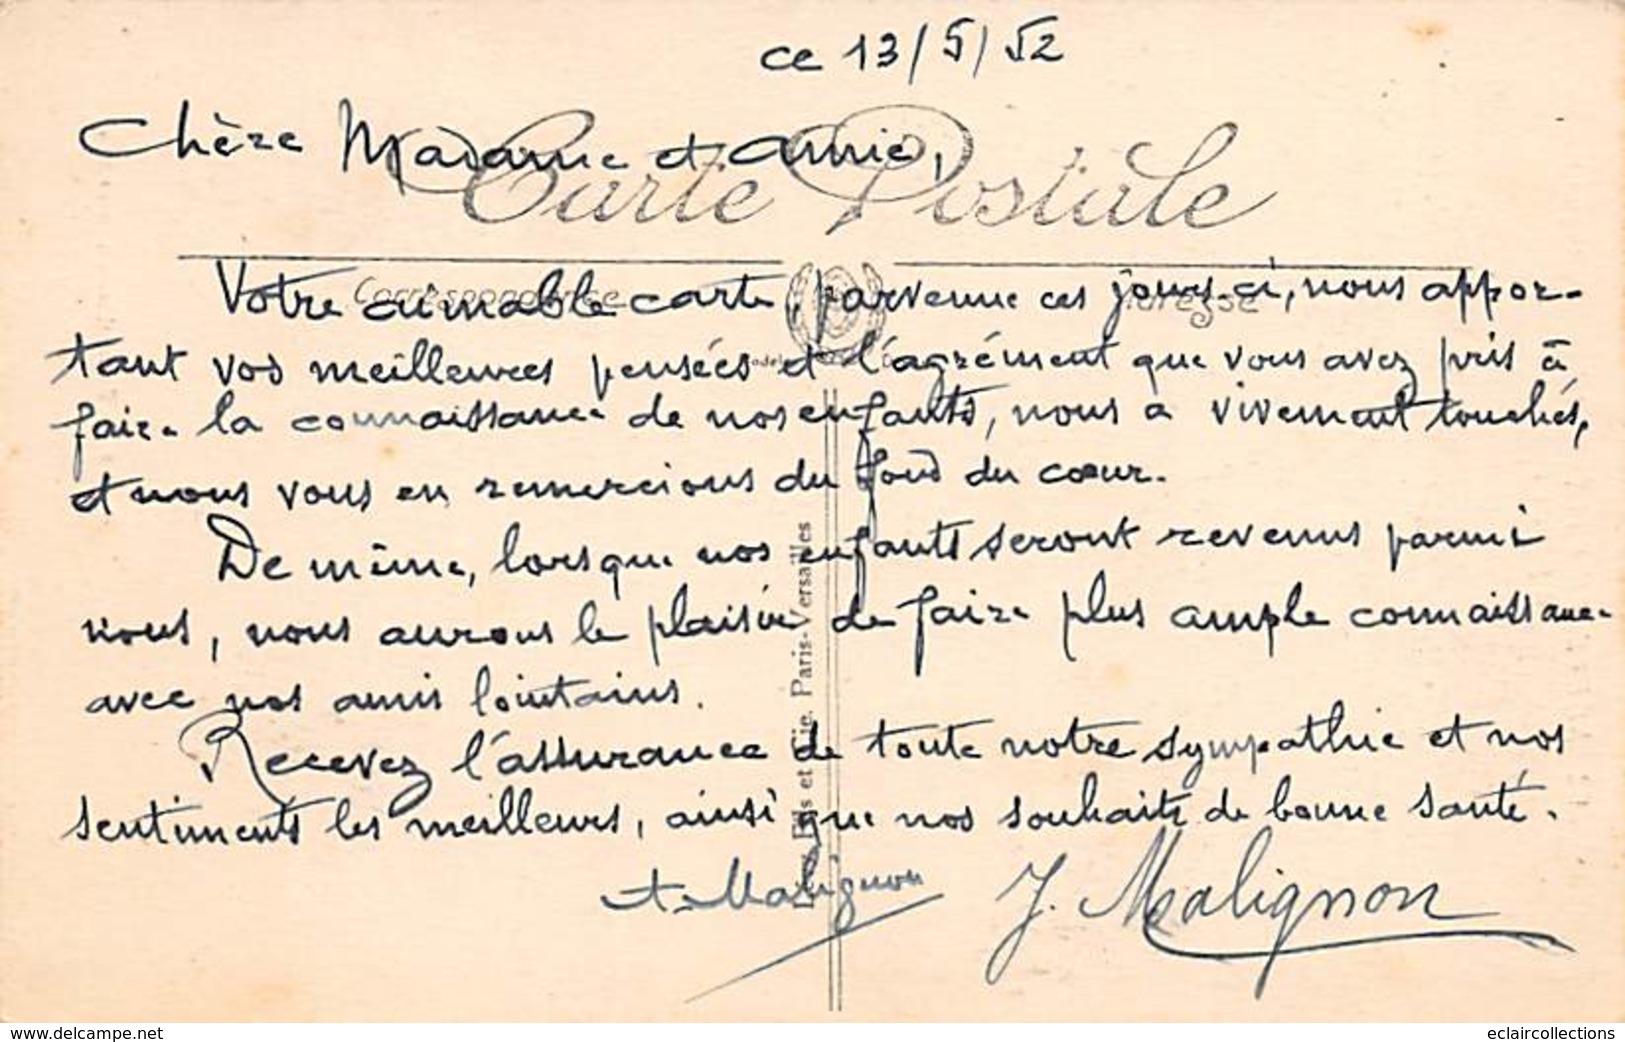 ce 13/5/52
Chère Madame et amie,
Carte Postale
Correspondance
Adresse
Votre aimable carte, parvenue ces jours-ci, nous appor-
tant vos meilleures pensées et l'agrément que vous avez pris à
faire la connaissance de nos enfants, nous a vivement touchés,
et nous vous en remercions du fond du cœur.
De même, lorsque nos enfants seront revenus parmi
nous, nous aurons le plaisir de faire plus ample connaissance
avec nos amis lointains.
Recevez l'assurance de toute notre sympathie et nos
sentiments les meilleurs, ainsi que nos souhaits de bonne santé.
Malignon
J. Malignon
Fils et Cie. Paris-Versailles
www.delcampe.net
eclaircollections